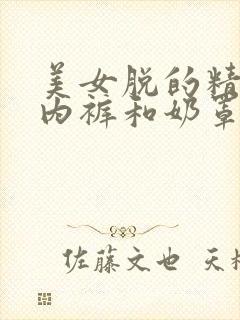 美女脱的精
内裤和奶罩
佐藤文也 天